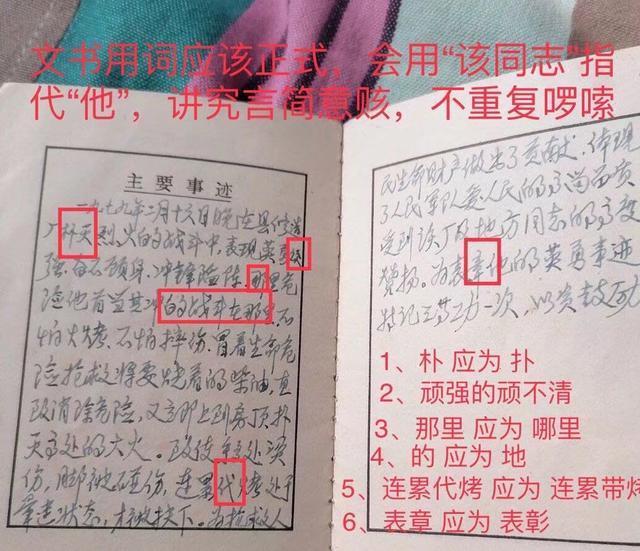 文书用词应该正式，会用“该同志”指
代“他”，讲究言简意赅，不重复啰嗦
主要事迹
一九七九年二月十六日晚
厂朴灭烈火的战斗中，表现英勇
强，奋不顾身，冲锋险阵，那里危
险他首当其冲的战斗在那里，不
怕火烤，不怕摔伤，冒着生命危
险抢救将要烧着的柴油，直
致消除危险，又立即上到房顶扑
灭高处的大火。致使
伤，脚被砸伤，连累代烤处于
状态，才被扶下。为抢救人
民生命财产做出了贡献，体现
了人民军队爱人民的高尚品质
受到该厂及地方同志的高度
赞扬。为表章他的英勇事迹
特记三等功一次，以资鼓励
1、朴 应为 扑
2、顽强的顽不清
3、那里 应为 哪里
4、的 应为 地
5、连累代烤 应为 连累带烤
6、表章 应为 表彰